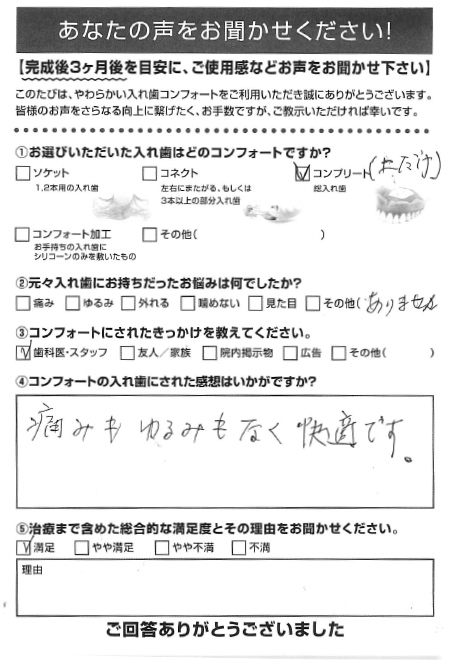 あなたの声をお聞かせください!
【完成後3ヶ月後を目安に、ご使用感などお声をお聞かせ下さい】
このたびは、やわらかい入れ歯コンフォートをご利用いただき誠にありがとうございます。
皆様のお声をさらなる向上に繋げたく、お手数ですが、ご教示いただければ幸いです。
①お選びいただいた入れ歯はどのコンフォートですか?
□ソケット □コネクト ☑コンプリート(
1,2本用の入れ歯 左右にまたがる、もしくは 総入れ歯
3本以上の部分入れ歯
□コンフォート加工 □その他( )
お手持ちの入れ歯に
シリコーンのみを敷いたもの
②元々入れ歯にお持ちだったお悩みは何でしたか?
□痛み □ゆるみ □外れる □噛めない □見た目 □その他(ありません
③コンフォートにされたきっかけを教えてください。
☑歯科医・スタッフ □友人/家族 □院内掲示物 □広告 □その他( )
④コンフォートの入れ歯にされた感想はいかがですか?
痛みも ゆるみも なく 快適です。
⑤治療まで含めた総合的な満足度とその理由をお聞かせください。
☑満足 □やや満足 □やや不満 □不満
理由
ご回答ありがとうございました